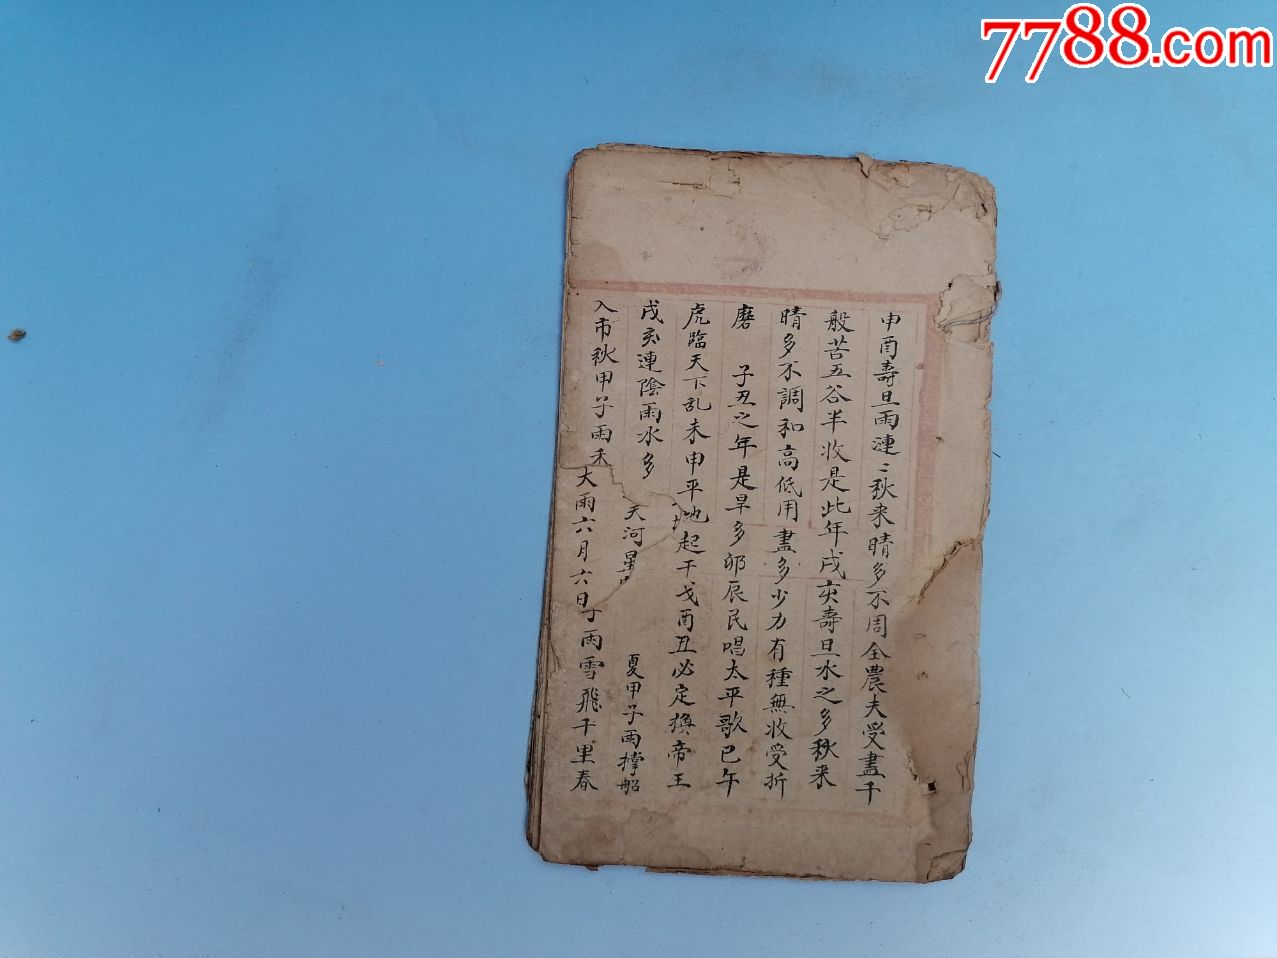 7788.com
申酉壽旦雨漣〻秋来晴多不周全農夫受盡千
般苦五谷半收是此年戌亥壽旦水之多秋来
晴多不調和高低用盡多少力有種無收受折
磨 子丑之年是旱多卯辰民唱太平歌巳午
虎臨天下乱未申平地起干戈酉丑必定換帝王
戌亥連陰雨水多 天河星 夏甲子雨撑船
入市秋甲子雨禾 大雨六月六日 雨雪飛千里春